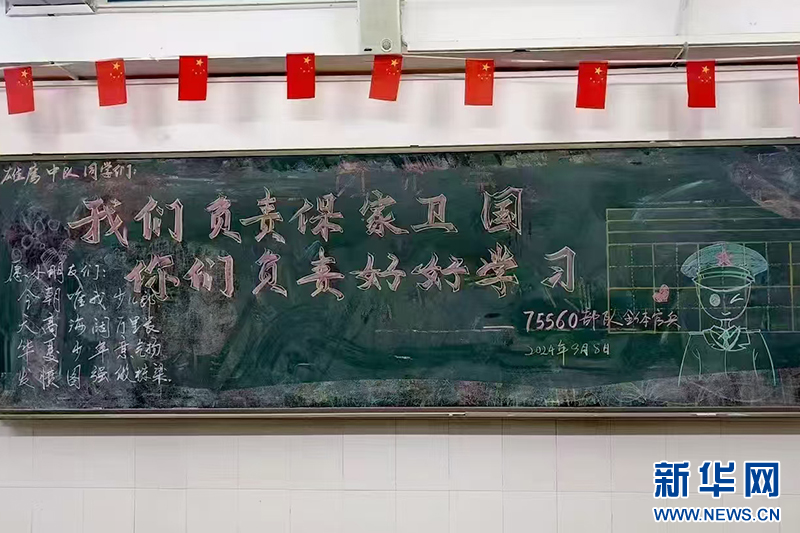 雄鹰中队同学们:
我们负责保家卫国
你们负责好好学习
愿小朋友们:
今朝唯我少年郎
天高海阔万里长
华夏少年意气扬
发愤图强做栋梁
——75560部队全体官兵
2024年3月8日
新华网
WWW.NEWS.CN